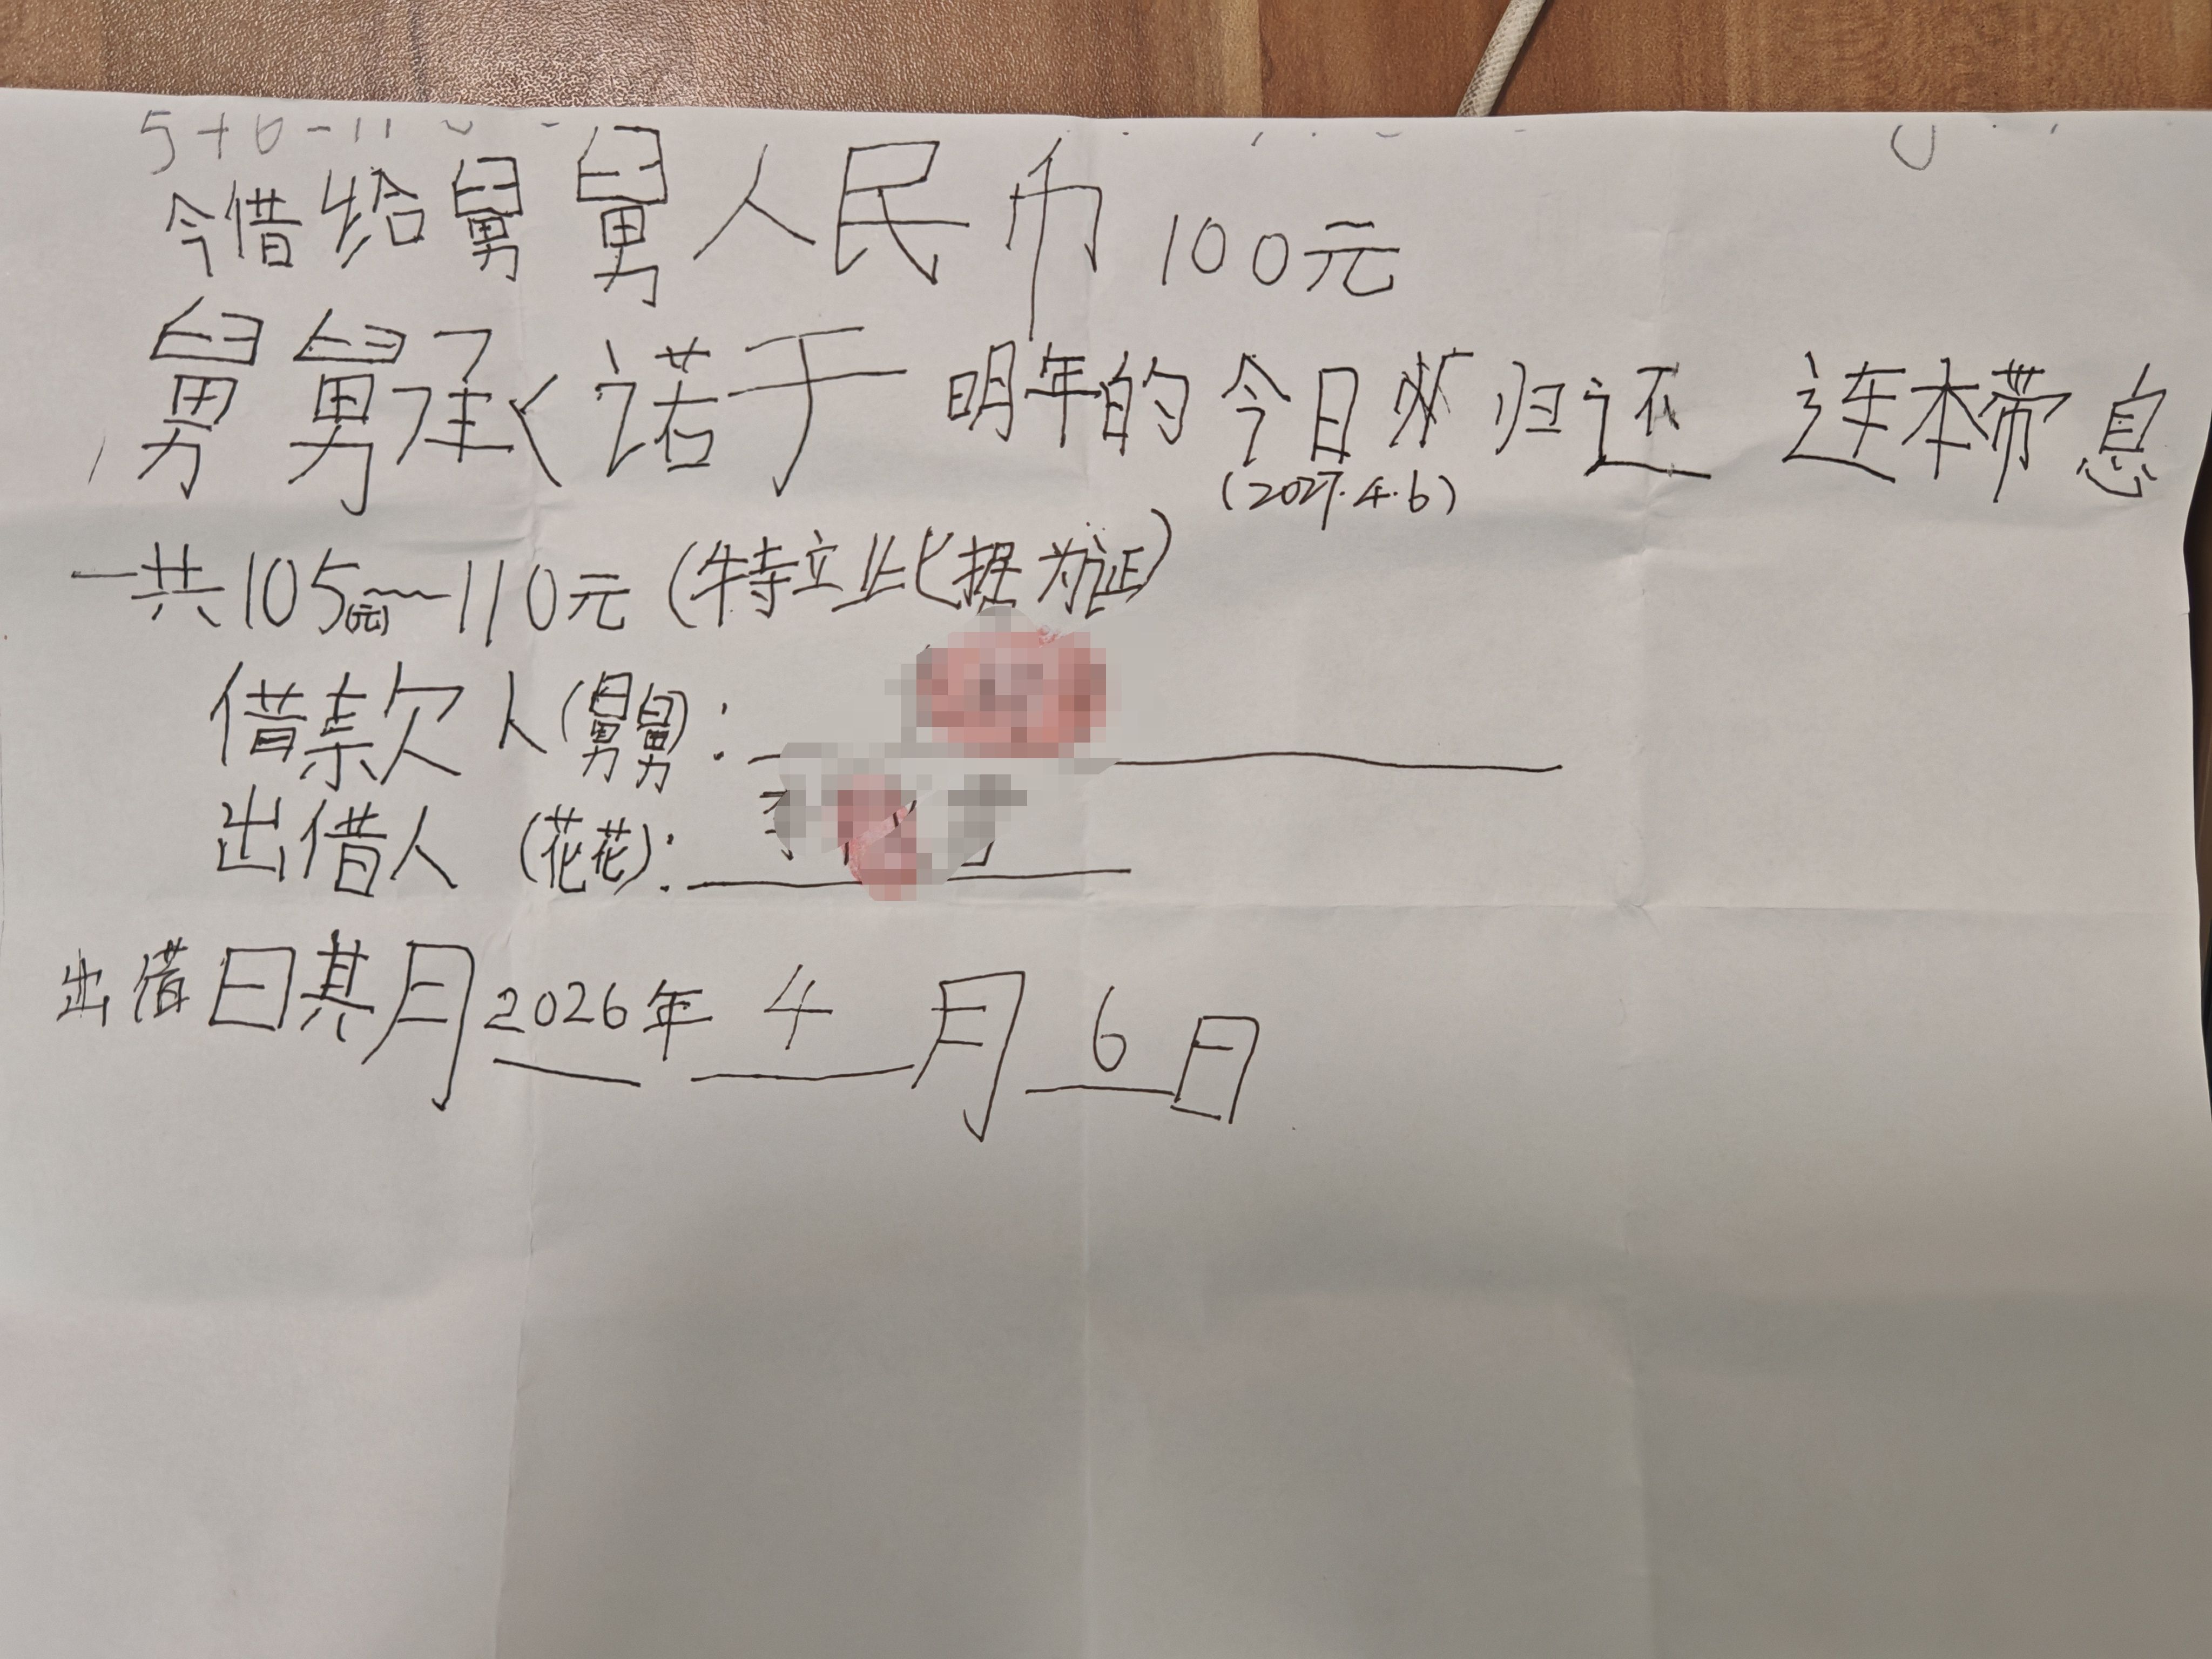 5+6-11
今借给舅舅人民币 100元
舅舅承诺于 明年的今日归还 连本带息
(2027.4.6)
一共105(元)~110元(特立此据为证)
借款人(舅舅):
出借人(花花):
出借日期2026年4月6日